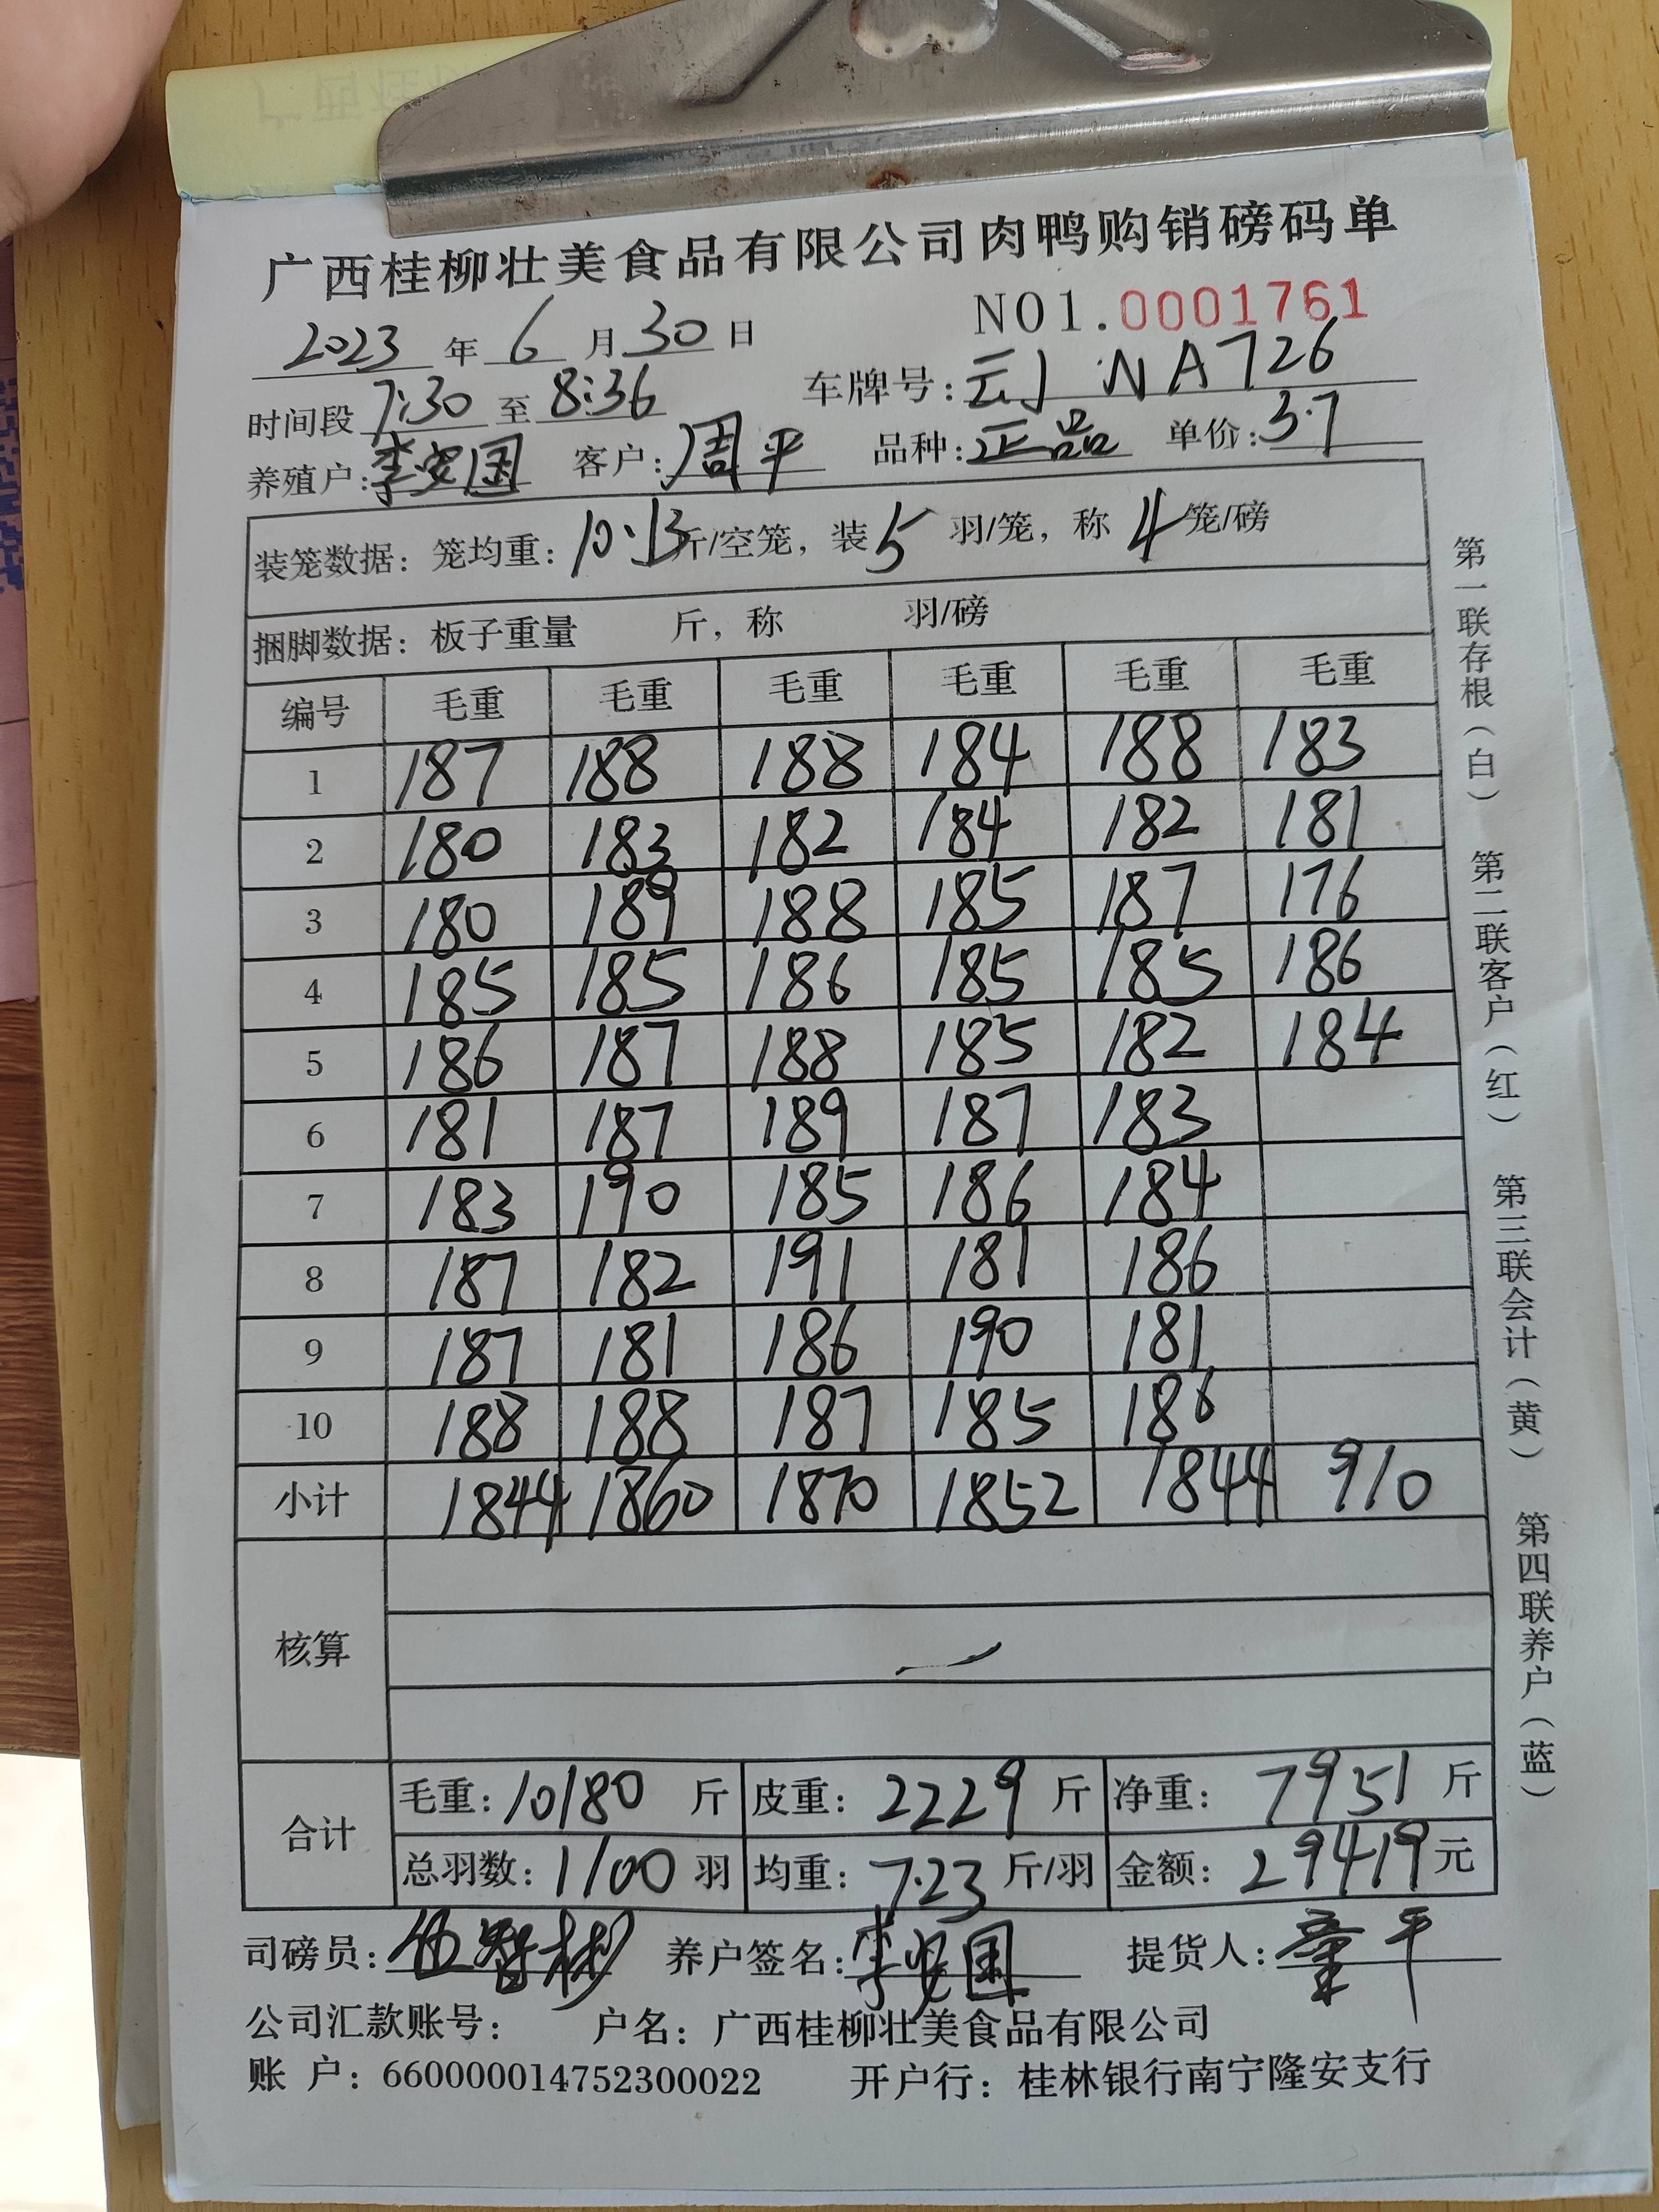 广西桂柳壮美食品有限公司肉鸭购销磅码单
2023 年 6 月 30 日 NO1.0001761
时间段 7:30 至 8:36 车牌号: NA726
养殖户:李安国 客户:周平 品种:正品 单价:3.7
装笼数据:笼均重:10.13斤/空笼,装5羽/笼,称4笼/磅
捆脚数据:板子重量 斤,称 羽/磅
编号 毛重 毛重 毛重 毛重 毛重 毛重
1 187 188 188 184 188 183
2 180 183 182 184 182 181
3 180 189 188 185 187 176
4 185 185 186 185 185 186
5 186 187 188 185 182 184
6 181 187 189 187 183
7 183 190 185 186 184
8 187 182 191 181 186
9 187 181 186 190 181
10 188 188 187 185 186
小计 1844 1860 1870 1852 1844 910
核算
合计 毛重:10180 斤 皮重:2229 斤 净重:7951 斤
总羽数:1100 羽 均重:7.23 斤/羽 金额:29419元
司磅员:伍智彬 养户签名:李安国 提货人:平
公司汇款账号: 户名:广西桂柳壮美食品有限公司
账 户:660000014752300022 开户行:桂林银行南宁隆安支行
第一联存根(白) 第二联客户(红) 第三联会计(黄) 第四联养户(蓝)